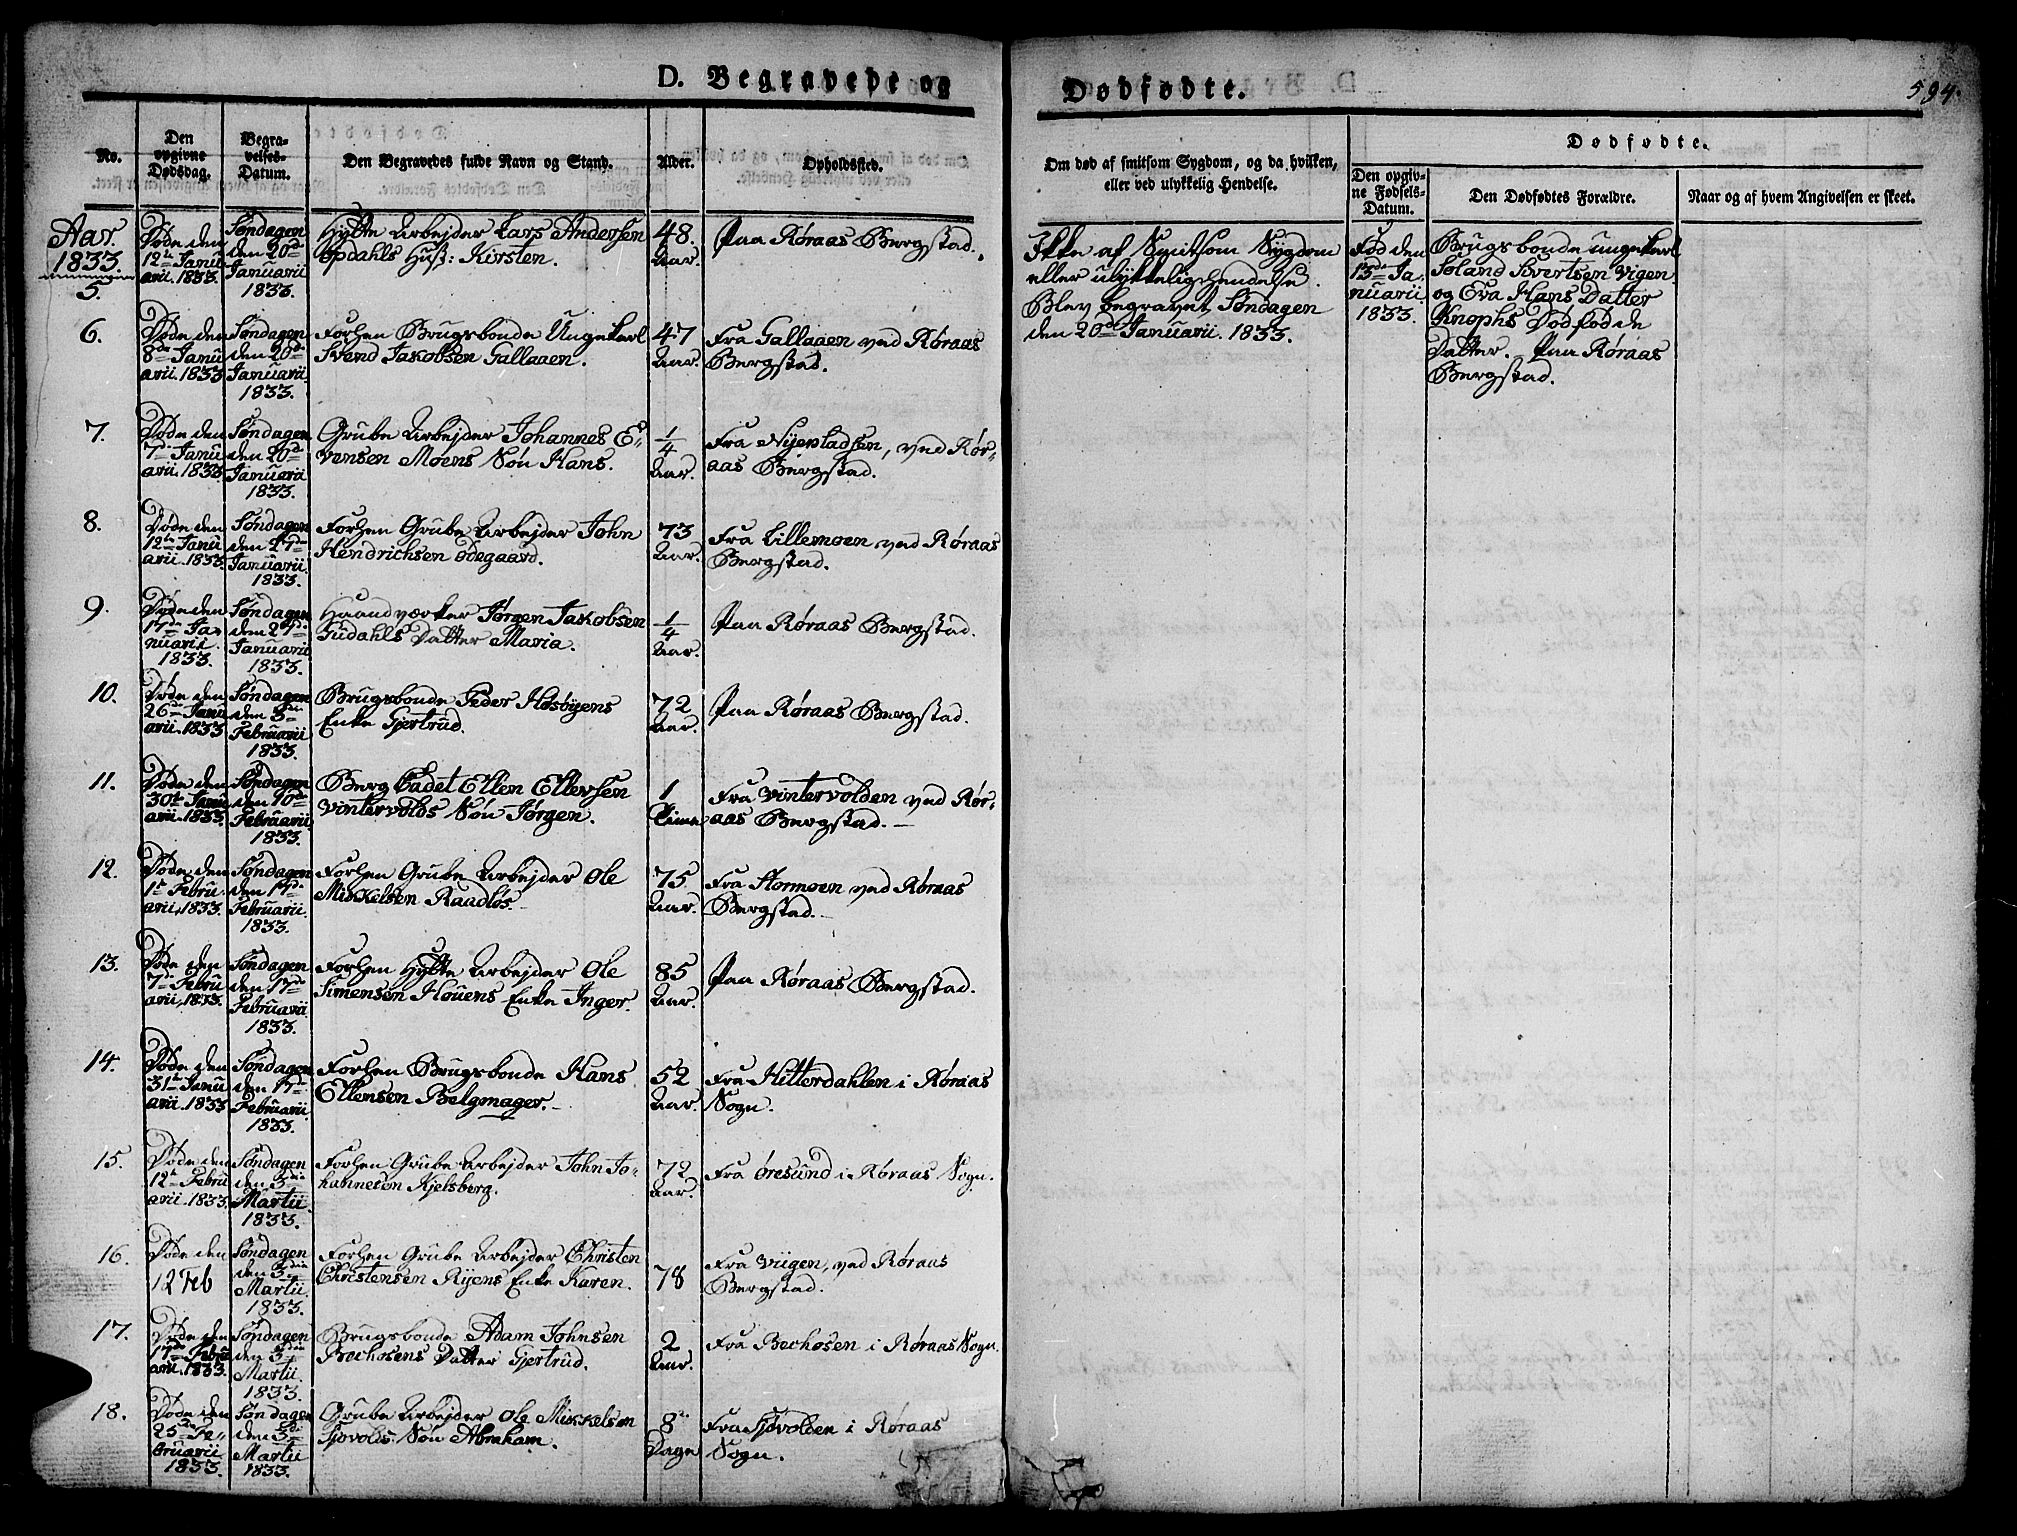 D. Begravede og
No.
Den
opgivne
Dødsdag.
Begra-
velses-
Datum.
Den Begravedes fulde Navn og Stand.
Alder.
Opholdssted.
Aar.
1833.
5.
Døde den
12te Janu
arii. 1833
Søndagen
den 20de
Januarii
1833.
Hytte Arbejder Lars Andersen
Opdahls Huß: Kirsten.
48.
Aar.
Paa Røraas Bergstad.
6.
Døde den
8de Janu
arii. 1833
Søndagen
den 20de
Januarii.
1833.
Forhen Brugsbonde Ungekarl
Svend Jakobsen Gallaaen.
47
Aar.
Fra Gallaaen ved Røraas
Bergstad.
7.
Døde den
7de Janu
arii. 1833
Søndagen
den 20de
Januarii
1833.
Grube Arbejder Johannes E-
vensen Moens Søn Hans.
1/4
Aar.
Fra Nyepladsen, ved Rør-
aas Bergstad.
8.
Døde den
12te Janu
arii. 1833
Søndagen
den 27de
Januarii.
1833.
Forhen Grube Arbejder John
Hendrichsen Ødegaard.
73
Aar.
Fra Lillemoen ved Røraas
Bergstad.
9.
Døde den
17de Ja-
nuarii.
1833.
Søndagen
den 27de
Januarii
1833.
Haandværker Jørgen Jakobsen
Sudahls Datter Maria.
1/4
Aar.
Paa Røraas Bergstad.
10.
Døde den
26de Janu
arii. 1833
Søndagen
den 3die
Februarii
1833.
Brugsbonde Peder Høsøyens
Enke Gjertrud.
72
Aar.
Paa Røraas Bergstad.
11.
Døde den
30te Janu
arii. 1833.
Søndagen
den 10de
Februarii.
1833.
Berg Cadet Ellen Ellevsen
Vintervolds Søn Jørgen.
1
Time
Fra Vintervolden ved Rør-
aas Bergstad.
12.
Døde den
1te Febru
arii. 1833.
Søndagen
den 17de
Februarii.
1833.
Forhen Grube Arbejder Ole
Mikkelsen Raadløs.
75
Aar.
Fra Stormoen ved Røraas
Bergstad.
13.
Døde den
7de Febru
arii. 1833.
Søndagen
den 17de
Februarii.
1833.
Forhen Hytte Arbejder Ole
Simensen Houens Enke Inger.
85
Aar.
Paa Røraas Bergstad.
14.
Døde den
31te Janu
arii. 1833
Søndagen
den 17de
Februarii.
1833.
Forhen Brugsbonde Hans
Ellensen Belgmager.
52
Aar.
Fra Hitterdahlen i Røraas
Sogn.
15.
Døde den
12te Febru
arii. 1833.
Søndagen
den 3die
Martii.
1833.
Forhen Grube Arbejder John Jo-
hannesen Kjelsberg.
72
Aar.
Fra Øresund i Røraas Sogn.
16.
Døde den
12 Feb
Søndagen
den 3die
Martii.
1833.
Forhen Grube Arbejder Christen
Christensen Ryens Enke Karen.
78
Fra Viigen, ved Røraas
Bergstad.
17.
Døde den
17de Febru
arii. 1833.
Søndagen
den 3die
Martii.
1833.
Brugsbonde Adam Johnsen
Bechosens Datter Gjertrud.
2
Aar.
Fra Bechosen i Røraas Sogn.
18.
Døde den
25de Fe-
bruarii
1833.
Søndagen
den 3die
Martii
1833.
Grube Arbejder Ole Mikkelsen
Sjøvolds Søn Abraham.
8
Dage
Fra Sjøvolden i Røraas
Sogn.
Dødfødte.
594.
Om død af smitsom Sygdom, og da hvilken,
eller ved ulykkelig Hendelse.
Dødfødte.
Den opgiv-
ne Fødsels-
Datum.
Den Dødfødtes Forældre.
Naar og af hvem Angivelsen er skeet.
Ikke af Smitsom Sygdom
eller ulykkelig Hendelse.
Blev begravet Søndagen
den 20de Januarii. 1833.
Fød den
13de Ja-
nuarii.
1833.
Brugsbonde ungekarl
Soland Sivertsen Vigen
og Eva Hans Datter
Knophs Dødfødde
Datter. Paa Røraas
Bergstad.